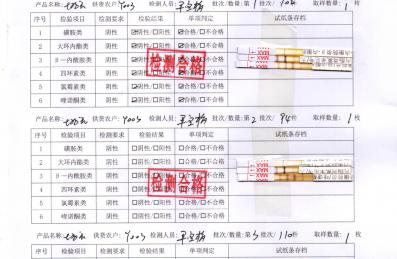 产品名称: 供货农户: Y005 检测人员: 批次/数量:第 1 批次/ 104 件 取样数量: 1 枚
序号 检验项目 检测要求 检验结果 单项判定 试纸条存档
1 磺胺类 阴性 ☑阴性/☐阳性 ☑合格/☐不合格
2 大环内酯类 阴性 ☑阴性/☐阳性 ☑合格/☐不合格
3 β一内酰胺类 阴性 ☑阴性/☐阳性 ☑合格/☐不合格
4 四环素类 阴性 ☑阴性/☐阳性 ☑合格/☐不合格
5 氯霉素类 阴性 ☑阴性/☐阳性 ☑合格/☐不合格
6 喹诺酮类 阴性 ☑阴性/☐阳性 ☑合格/☐不合格
检测合格
MAX MAX
产品名称: 供货农户: Y005 检测人员: 批次/数量:第 2 批次/ 94 件 取样数量: 1 枚
序号 检验项目 检测要求 检验结果 单项判定 试纸条存档
1 磺胺类 阴性 ☐阴性/☐阳性 ☐合格/☐不合格
2 大环内酯类 阴性 ☐阴性/☐阳性 ☐合格/☐不合格
3 β一内酰胺类 阴性 ☐阴性/☐阳性 ☐合格/☐不合格
4 四环素类 阴性 ☐阴性/☐阳性 ☐合格/☐不合格
5 氯霉素类 阴性 ☐阴性/☐阳性 ☐合格/☐不合格
6 喹诺酮类 阴性 ☐阴性/☐阳性 ☐合格/☐不合格
检测合格
MAX MAX
产品名称: 供货农户: Y005 检测人员: 批次/数量:第 3 批次/ 110 件 取样数量: 1 枚
序号 检验项目 检测要求 检验结果 单项判定 试纸条存档